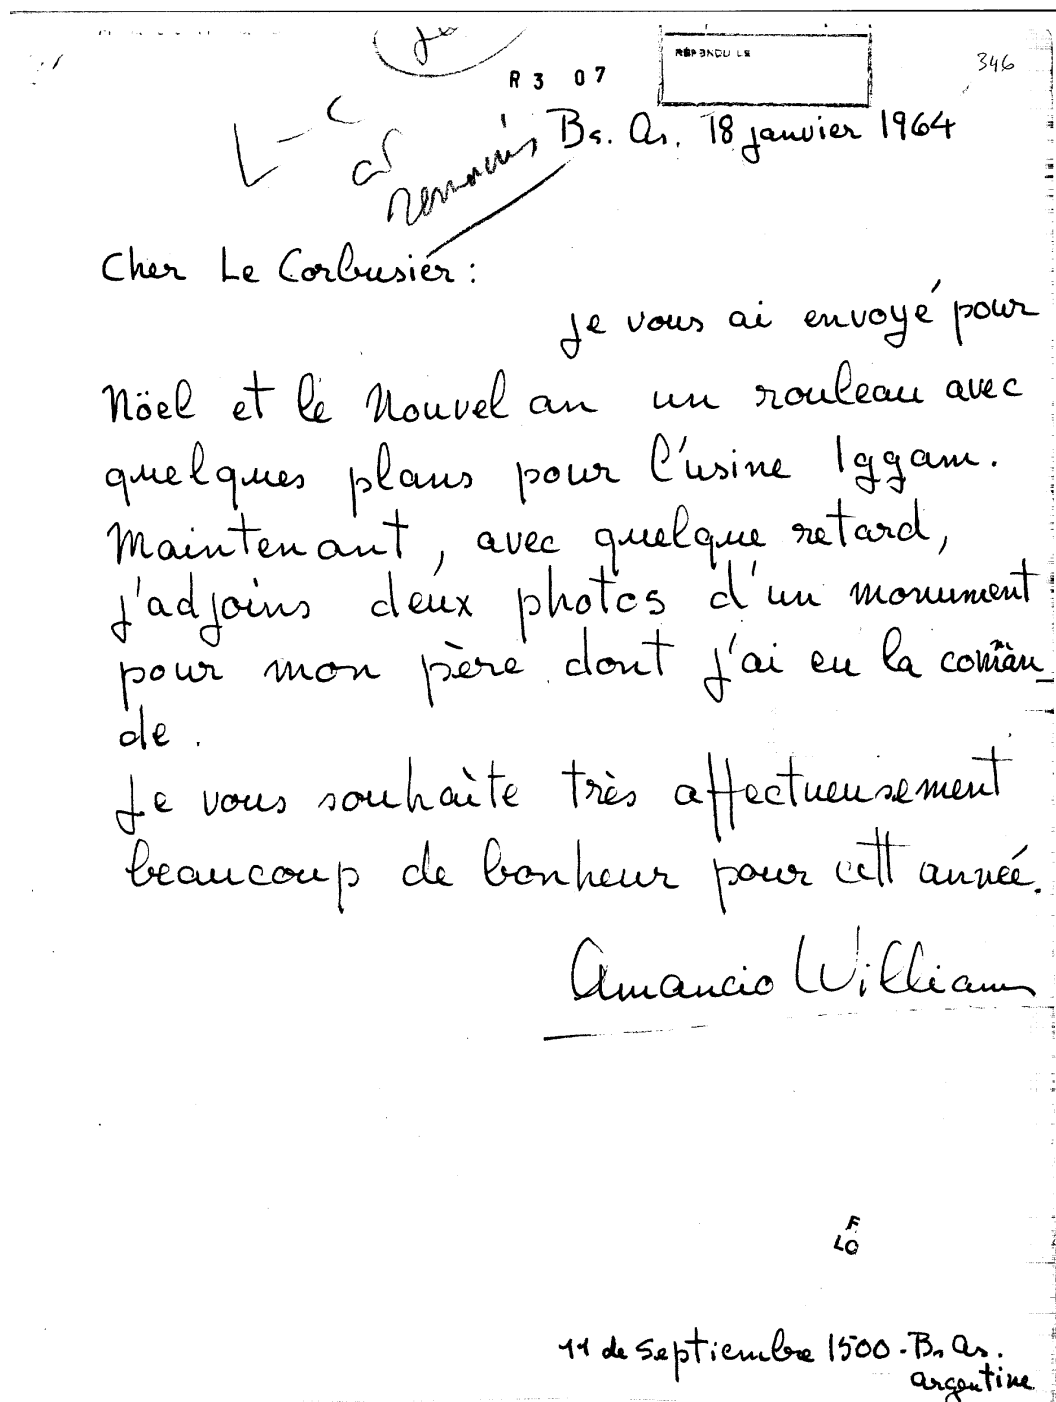 R 3 07
RÉPONDU LE
346
Bs. As. 18 janvier 1964
remercier
Cher Le Corbusier :
Je vous ai envoyé pour
Nöel et le Nouvel an un rouleau avec
quelques plans pour l'usine Iggam.
Maintenant, avec quelque retard,
j'adjoins deux photos d'un monument
pour mon père dont j'ai eu la comman_
de.
Je vous souhaite très affectueusement
beaucoup de bonheur pour cett année.
Amancio Williams
F
LC
11 de Septiembre 1500 - Bs As.
Argentine